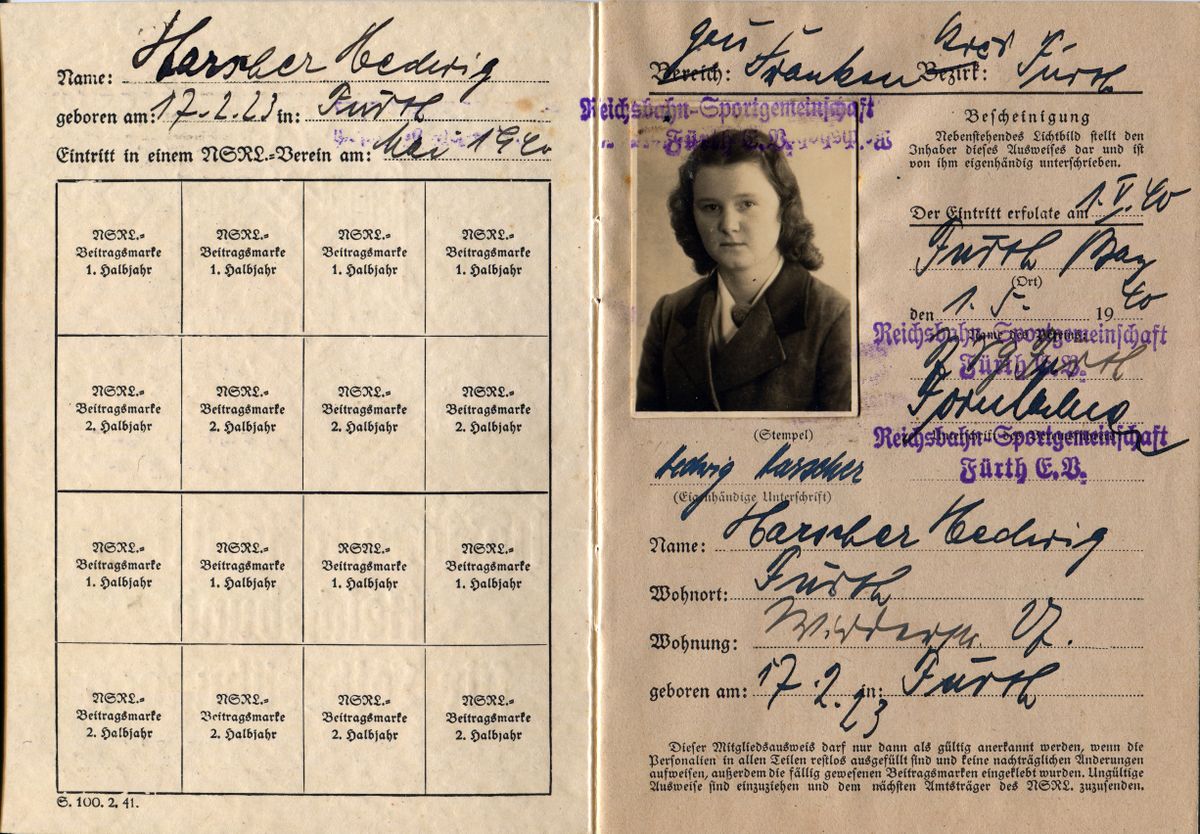 Name: Harscher Hedwig
geboren am: 17.2.23 in: Fürth
Eintritt in einem NSRL.=Verein am: Mai 1940
NSRL.= Beitragsmarke 1. Halbjahr
NSRL.= Beitragsmarke 1. Halbjahr
NSRL.= Beitragsmarke 1. Halbjahr
NSRL.= Beitragsmarke 1. Halbjahr
NSRL.= Beitragsmarke 2. Halbjahr
NSRL.= Beitragsmarke 2. Halbjahr
NSRL.= Beitragsmarke 2. Halbjahr
NSRL.= Beitragsmarke 2. Halbjahr
NSRL.= Beitragsmarke 1. Halbjahr
NSRL.= Beitragsmarke 1. Halbjahr
RSNL.= Beitragsmarke 1. Halbjahr
NSRL.= Beitragsmarke 1. Halbjahr
NSRL.= Beitragsmarke 2. Halbjahr
NSRL.= Beitragsmarke 2. Halbjahr
NSRL.= Beitragsmarke 2. Halbjahr
NSRL.= Beitragsmarke 2. Halbjahr
S. 100. 2. 41.
gau Kreis
Bereich: Franken Bezirk: Fürth
Reichsbahn-Sportgemeinschaft
Fürth E.V.
Bescheinigung
Nebenstehendes Lichtbild stellt den
Inhaber dieses Ausweises dar und ist
von ihm eigenhändig unterschrieben.
Der Eintritt erfolate am 1.V.40
Fürth Bay
(Ort)
den 1.5. 1940
Reichsbahn-Sportgemeinschaft
Fürth E.V.
Reichsbahn-Sportgemeinschaft
Fürth E.V.
(Stempel)
Hedwig Harscher
(Eigenhändige Unterschrift)
Name: Harscher Hedwig
Wohnort: Fürth
Wohnung: 17.
geboren am: 17.2.23 in: Fürth
Dieser Mitgliedsausweis darf nur dann als gültig anerkannt werden, wenn die
Personalien in allen Teilen restlos ausgefüllt sind und keine nachträglichen Änderungen
aufweisen, außerdem die fällig gewesenen Beitragsmarken eingeklebt wurden. Ungültige
Ausweise sind einzuziehen und dem nächsten Amtsträger des NSRL. zuzusenden.